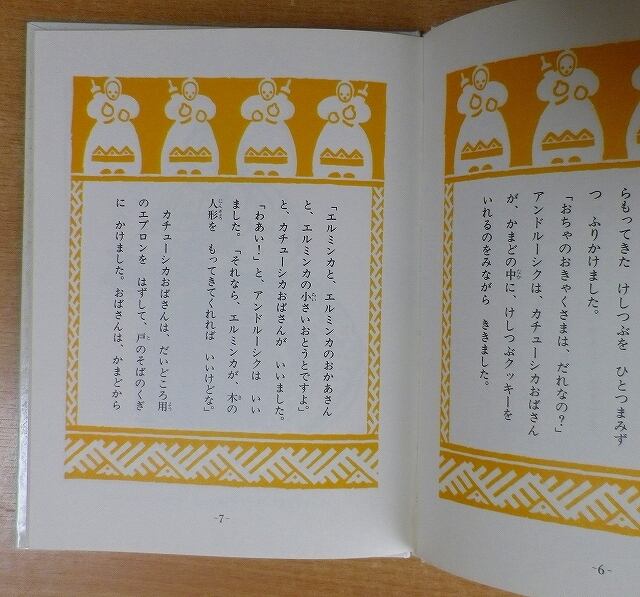 らもってきた けしつぶを ひとつまみず
つ ふりかけました。
「おちゃのおきゃくさまは、だれなの?」
アンドルーシクは、カチューシカおばさん
が、かまどの中に、けしつぶクッキーを
いれるのをみながら ききました。
-6-
「エルミンカと、エルミンカのおかあさん
と、エルミンカの小さいおとうとですよ。」
と、カチューシカおばさんが いいました。
「わあい!」と、アンドルーシクは いい
ました。「それなら、エルミンカが、木の
人形を もってきてくれれば いいけどな。」
カチューシカおばさんは、だいどころ用
のエプロンを はずして、戸のそばのくぎ
に かけました。おばさんは、かまどから
-7-